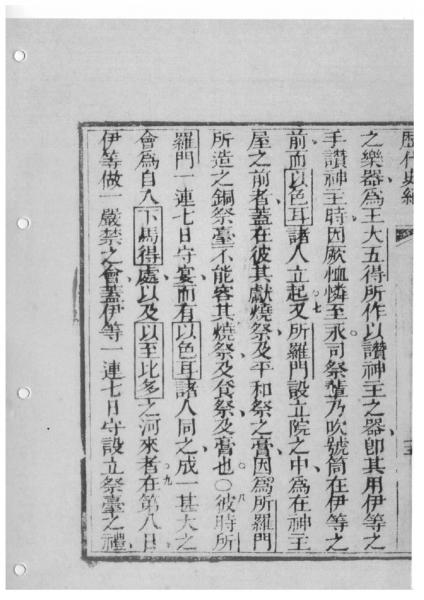 歷代史紀
之樂器為王大五得所作以讚神王之器卽其用伊等之
手讚神王時因厥恤憐至永司祭輩乃吹號筒在伊等之
前而以色耳諸人立起又所羅門設立院之中為在神王
七
屋之前者蓋在彼其獻燒祭及平和祭之膏因為所羅門
所造之銅祭臺不能容其燒祭及食祭及膏也○彼時所
八
羅門一連七日守宴而有以色耳諸人同之成一甚大之
會為自入下馬得處以及以至比多之河來者在第八日
九
伊等做一嚴禁之會蓋伊等一連七日守設立祭臺之禮